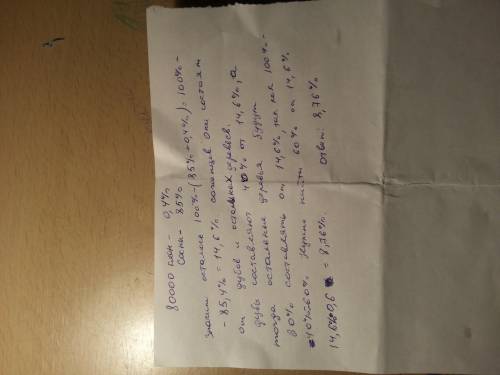 80000 елок - 0,4%
Сосна - 85%
Значит осталось 100%-(85%+0,4%)=100%-
- 85,4% = 14,6% они состоят
от дубов и остальных деревьев.
дубы составляют 40% от 14,6%, а
тогда остальные деревья будут
60% составлять от 14,6%, так как 100%-
-40%=60%. Нужно найти 60% от 14,6%
14,6%·0,6 = 8,76%. Ответ: 8,76%